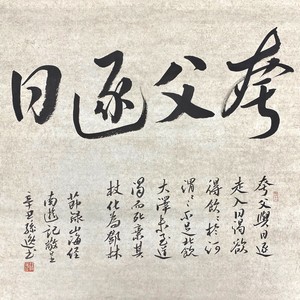 夸父逐日
夸父與日逐
走入日渴欲
得飲〻於河
渭〻不足北飲
大澤未至道
渴而死棄其
杖化為鄧林
節錄山海經
辛丑孫